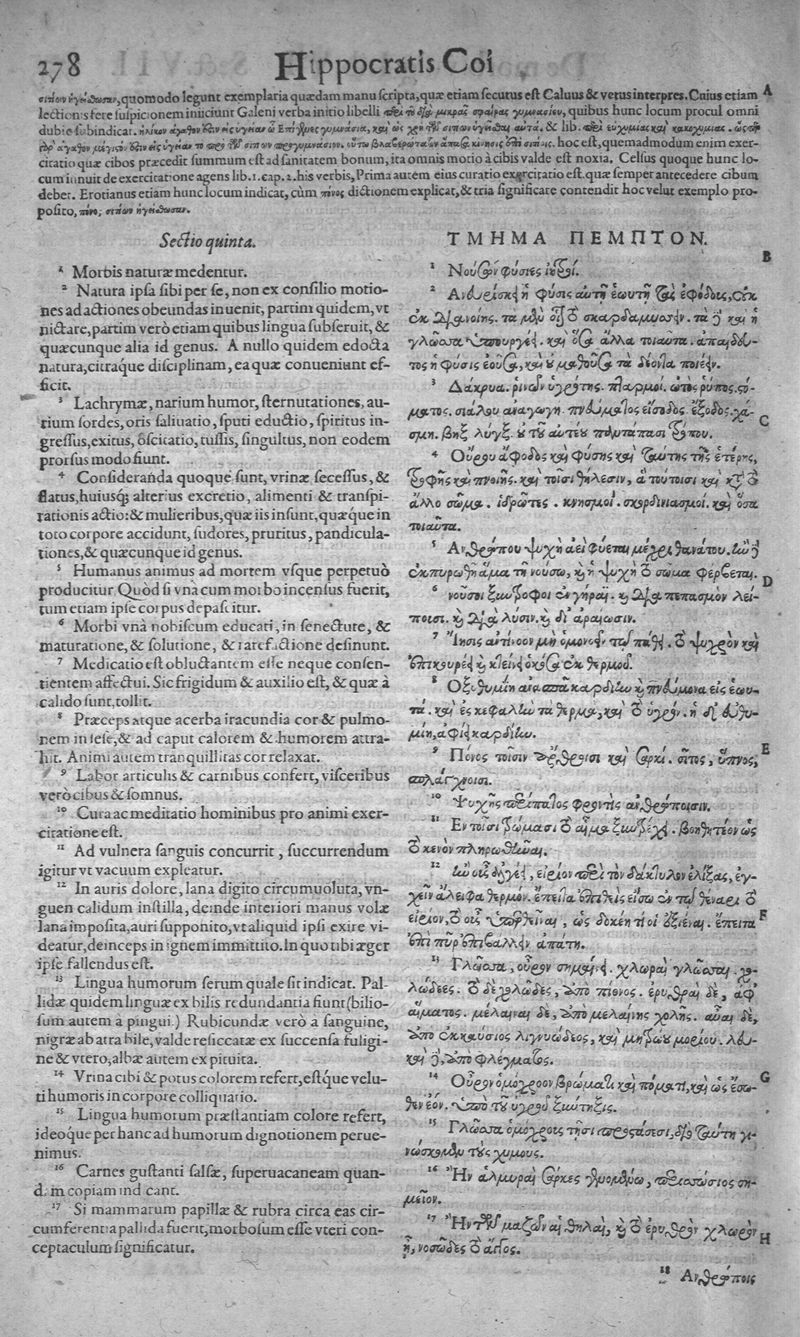 278 Hippocratis Coi
quomodo legunt exemplaria quædam manu ſcripta, quæ etiam ſecutus eſt Caluus & vetus interpres. Cuius etiam A
lectionis fere ſuſpicionem iniiciunt Galeni verba initio libelli quibus hunc locum procul omni
dubio ſubindicat. & lib.
hoc eſt, quemadmodum enim exer-
citatio quæ cibos præcedit ſummum eſt ad ſanitatem bonum, ita omnis motio à cibis valde eſt noxia. Celſus quoque hunc lo-
cum innuit de exercitatione agens lib. 1. cap. 2. his verbis, Prima autem eius curatio exercitatio eſt. quæ ſemper antecedere cibum
debet. Erotianus etiam hunc locum indicat, cùm πόνος dictionem explicat, & tria ſignificare contendit hoc velut exemplo pro-
poſito,
Sectio quinta.
1 Morbis naturæ medentur.
2 Natura ipſa ſibi per ſe, non ex conſilio motio-
nes ad actiones obeundas inuenit, partim quidem, vt
nictare, partim verò etiam quibus lingua ſubſeruit, &
quæcunque alia id genus. A nullo quidem edocta
natura, citraque diſciplinam, ea quæ conueniunt ef-
ficit.
3 Lachrymæ, narium humor, ſternutationes, au-
rium ſordes, oris ſaliuatio, ſputi eductio, ſpiritus in-
greſſus, exitus, oſcitatio, tuſſis, ſingultus, non eodem
prorſus modo fiunt.
4 Conſideranda quoque ſunt, vrinæ ſeceſſus, &
flatus, huiuſq; alterius excretio, alimenti & tranſpi-
rationis actio: & mulieribus, quæ iis inſunt, quæque in
toto corpore accidunt, ſudores, pruritus, pandicula-
tiones, & quæcunque id genus.
5 Humanus animus ad mortem vſque perpetuò
producitur. Quòd ſi vnà cum morbo incenſus fuerit,
tum etiam ipſe corpus depaſcitur.
6 Morbi vnà nobiſcum educati, in ſenectute, &
maturatione, & ſolutione, & rarefactione deſinunt.
7 Medicatio eſt obluctantem eſſe neque conſen-
tientem affectui. Sic frigidum & auxilio eſt, & quæ à
calido ſunt, tollit.
8 Præceps atque acerba iracundia cor & pulmo-
nem in ſeſe, & ad caput calorem & humorem attra-
hit. Animi autem tranquillitas cor relaxat.
9 Labor articulis & carnibus confert, viſceribus
verò cibus & ſomnus.
10 Cura ac meditatio hominibus pro animi exer-
citatione eſt.
11 Ad vulnera ſanguis concurrit, ſuccurrendum
igitur vt vacuum expleatur.
12 In auris dolore, lana digito circumuoluta, vn-
guen calidum inſtilla, deinde interiori manus volæ
lana impoſita, auri ſupponito, vt aliquid ipſi exire vi-
deatur, deinceps in ignem immittito. In quo tibi æger
ipſe fallendus eſt.
13 Lingua humorum ſerum quale ſit indicat. Pal-
lidæ quidem linguæ ex bilis redundantia fiunt (bilio-
ſum autem à pingui.) Rubicundæ verò a ſanguine,
nigræ ab atra bile, valde reſiccatæ ex ſuccenſa fuligi-
ne & vtero, albæ autem ex pituita.
14 Vrina cibi & potus colorem refert, eſtque velu-
ti humoris in corpore colliquatio.
15 Lingua humorum præſtantiam colore refert,
ideoque per hanc ad humorum dignotionem perue-
nimus.
16 Carnes guſtanti ſalſæ, ſuperuacaneam quan-
dam copiam indicant.
17 Si mammarum papillæ & rubra circa eas cir-
cumferentia pallida fuerit, morboſum eſſe vteri con-
ceptaculum ſignificatur.
ΤΜΗΜΑ ΠΕΜΠΤΟΝ. B
1 Νούσων φύσιες ἰητροί.
2 Ἀνευρίσκει ἡ φύσις αὐτὴ ἑωυτῇ τὰς ἐφόδους, οὐκ
ἐκ διανοίης. τὰ μὲν οἷον τὸ σκαρδαμύσσειν. τὰ δὲ καὶ ἡ
γλῶσσα ὑπουργέει. καὶ ὅσα ἄλλα τοιαῦτα. ἀπαίδευ-
τος ἡ φύσις ἐοῦσα, καὶ οὐ μαθοῦσα τὰ δέοντα ποιέειν.
3 Δάκρυα. ῥινῶν ὑγρότης. πταρμοί. ὠτὸς ῥύπος. στό-
ματος. σιάλου ἀναγωγή. πνεύματος εἴσοδος. ἔξοδος. χά- C
σμη. βὴξ λύγξ. οὐ τοῦ αὐτέου παντάπασι τρόπου.
4 Οὔρου ἄφοδος καὶ φύσης καὶ ταύτης τῆς ἑτέρης,
τροφῆς καὶ πνοιῆς. καὶ τοῖσι θήλεσιν, ἃ τούτοισι καὶ κατὰ τὸ
ἄλλο σῶμα. ἱδρῶτες. κνησμοί. σκορδινιασμοί. καὶ ὅσα
τοιαῦτα.
5 Ἀνθρώπου ψυχὴ ἀεὶ φύεται μέχρι θανάτου. ἢν δὲ
ἐκπυρωθῇ ἅμα τῇ νούσῳ, καὶ ἡ ψυχὴ τὸ σῶμα φέρβεται. D
6 νοῦσοι ξύντροφοι ἐν γήραϊ. καὶ διὰ πεπασμὸν λεί-
πουσι. καὶ διὰ λύσιν. καὶ δι' ἀραίωσιν.
7 Ἴησις ἀντίνοον μὴ ὁμονοεῖν τῷ πάθει. τὸ ψυχρὸν καὶ
ἐπικουρέει καὶ
8 Ὀξυθυμίη ἀνασπᾷ καρδίην καὶ πνεύμονα εἰς ἑωυ-
τά. καὶ ἐς κεφαλὴν τὰ θερμά, καὶ τὸ ὑγρόν. ἡ δ' εὐθυ-
μίη, ἀφίει καρδίην.
9 Πόνος τοῖσιν ἄρθροισι καὶ σαρκί. σῖτος, ὕπνος, E
σπλάγχνοισι.
10 Ψυχῆς περίπατος φροντὶς ἀνθρώποισιν.
11 Ἐν τοῖσι τρώμασι τὸ αἷμα ξυντρέχει. βοηθητέον ὡς
τὸ κενὸν πληρωθῆναι.
12 ἢν οὖς ἀλγέει, εἴριον περὶ τὸν δάκτυλον ἑλίξας, ἐγ-
χεῖν ἄλειφα θερμόν. ἔπειτα ἐπιθεὶς εἴσω ἐν τῷ θέναρι τὸ
εἴριον, τὸ οὖς ὑποθεῖναι, ὡς δοκέῃ τί οἱ ἐξιέναι. ἔπειτα F
ἐπὶ πῦρ ἐπιβάλλειν ἀπάτη.
13 Γλῶσσα, οὖρον σημαίνει. χλωραὶ γλῶσσαι. χο-
λώδεες. τὸ δὲ χολῶδες, ἀπὸ πίονος. ἐρυθραὶ δὲ, ἀφ'
αἵματος. μέλαιναι δὲ, ἀπὸ μελαίνης χολῆς. αὖαι δὲ,
ἀπὸ ἐκκαύσιος λιγνυώδεος, καὶ μητρῴου μορίου. λευ-
καὶ δὲ, ἀπὸ φλέγματος.
14 Οὖρον ὁμόχροον βρώματι καὶ πόματι, καὶ ὡς ἔσω- G
θεν ἐόν. ὑπὸ τοῦ ὑγροῦ ξύντηξις.
15 Γλῶσσα ὁμόχρους τῇσι προστάσεσι, διὸ ταύτῃ γι-
νώσκομεν τοὺς χυμούς.
16 Ἢν ἁλμυραὶ σάρκες γευομένῳ, περισσώσιος ση-
μεῖον.
17 Ἢν τῶν μαζῶν αἱ θηλαί, καὶ τὸ ἐρυθρὸν χλωρὸν
ᾖ, νοσῶδες τὸ ἄγγος. H
18 Ἀνθρώποις